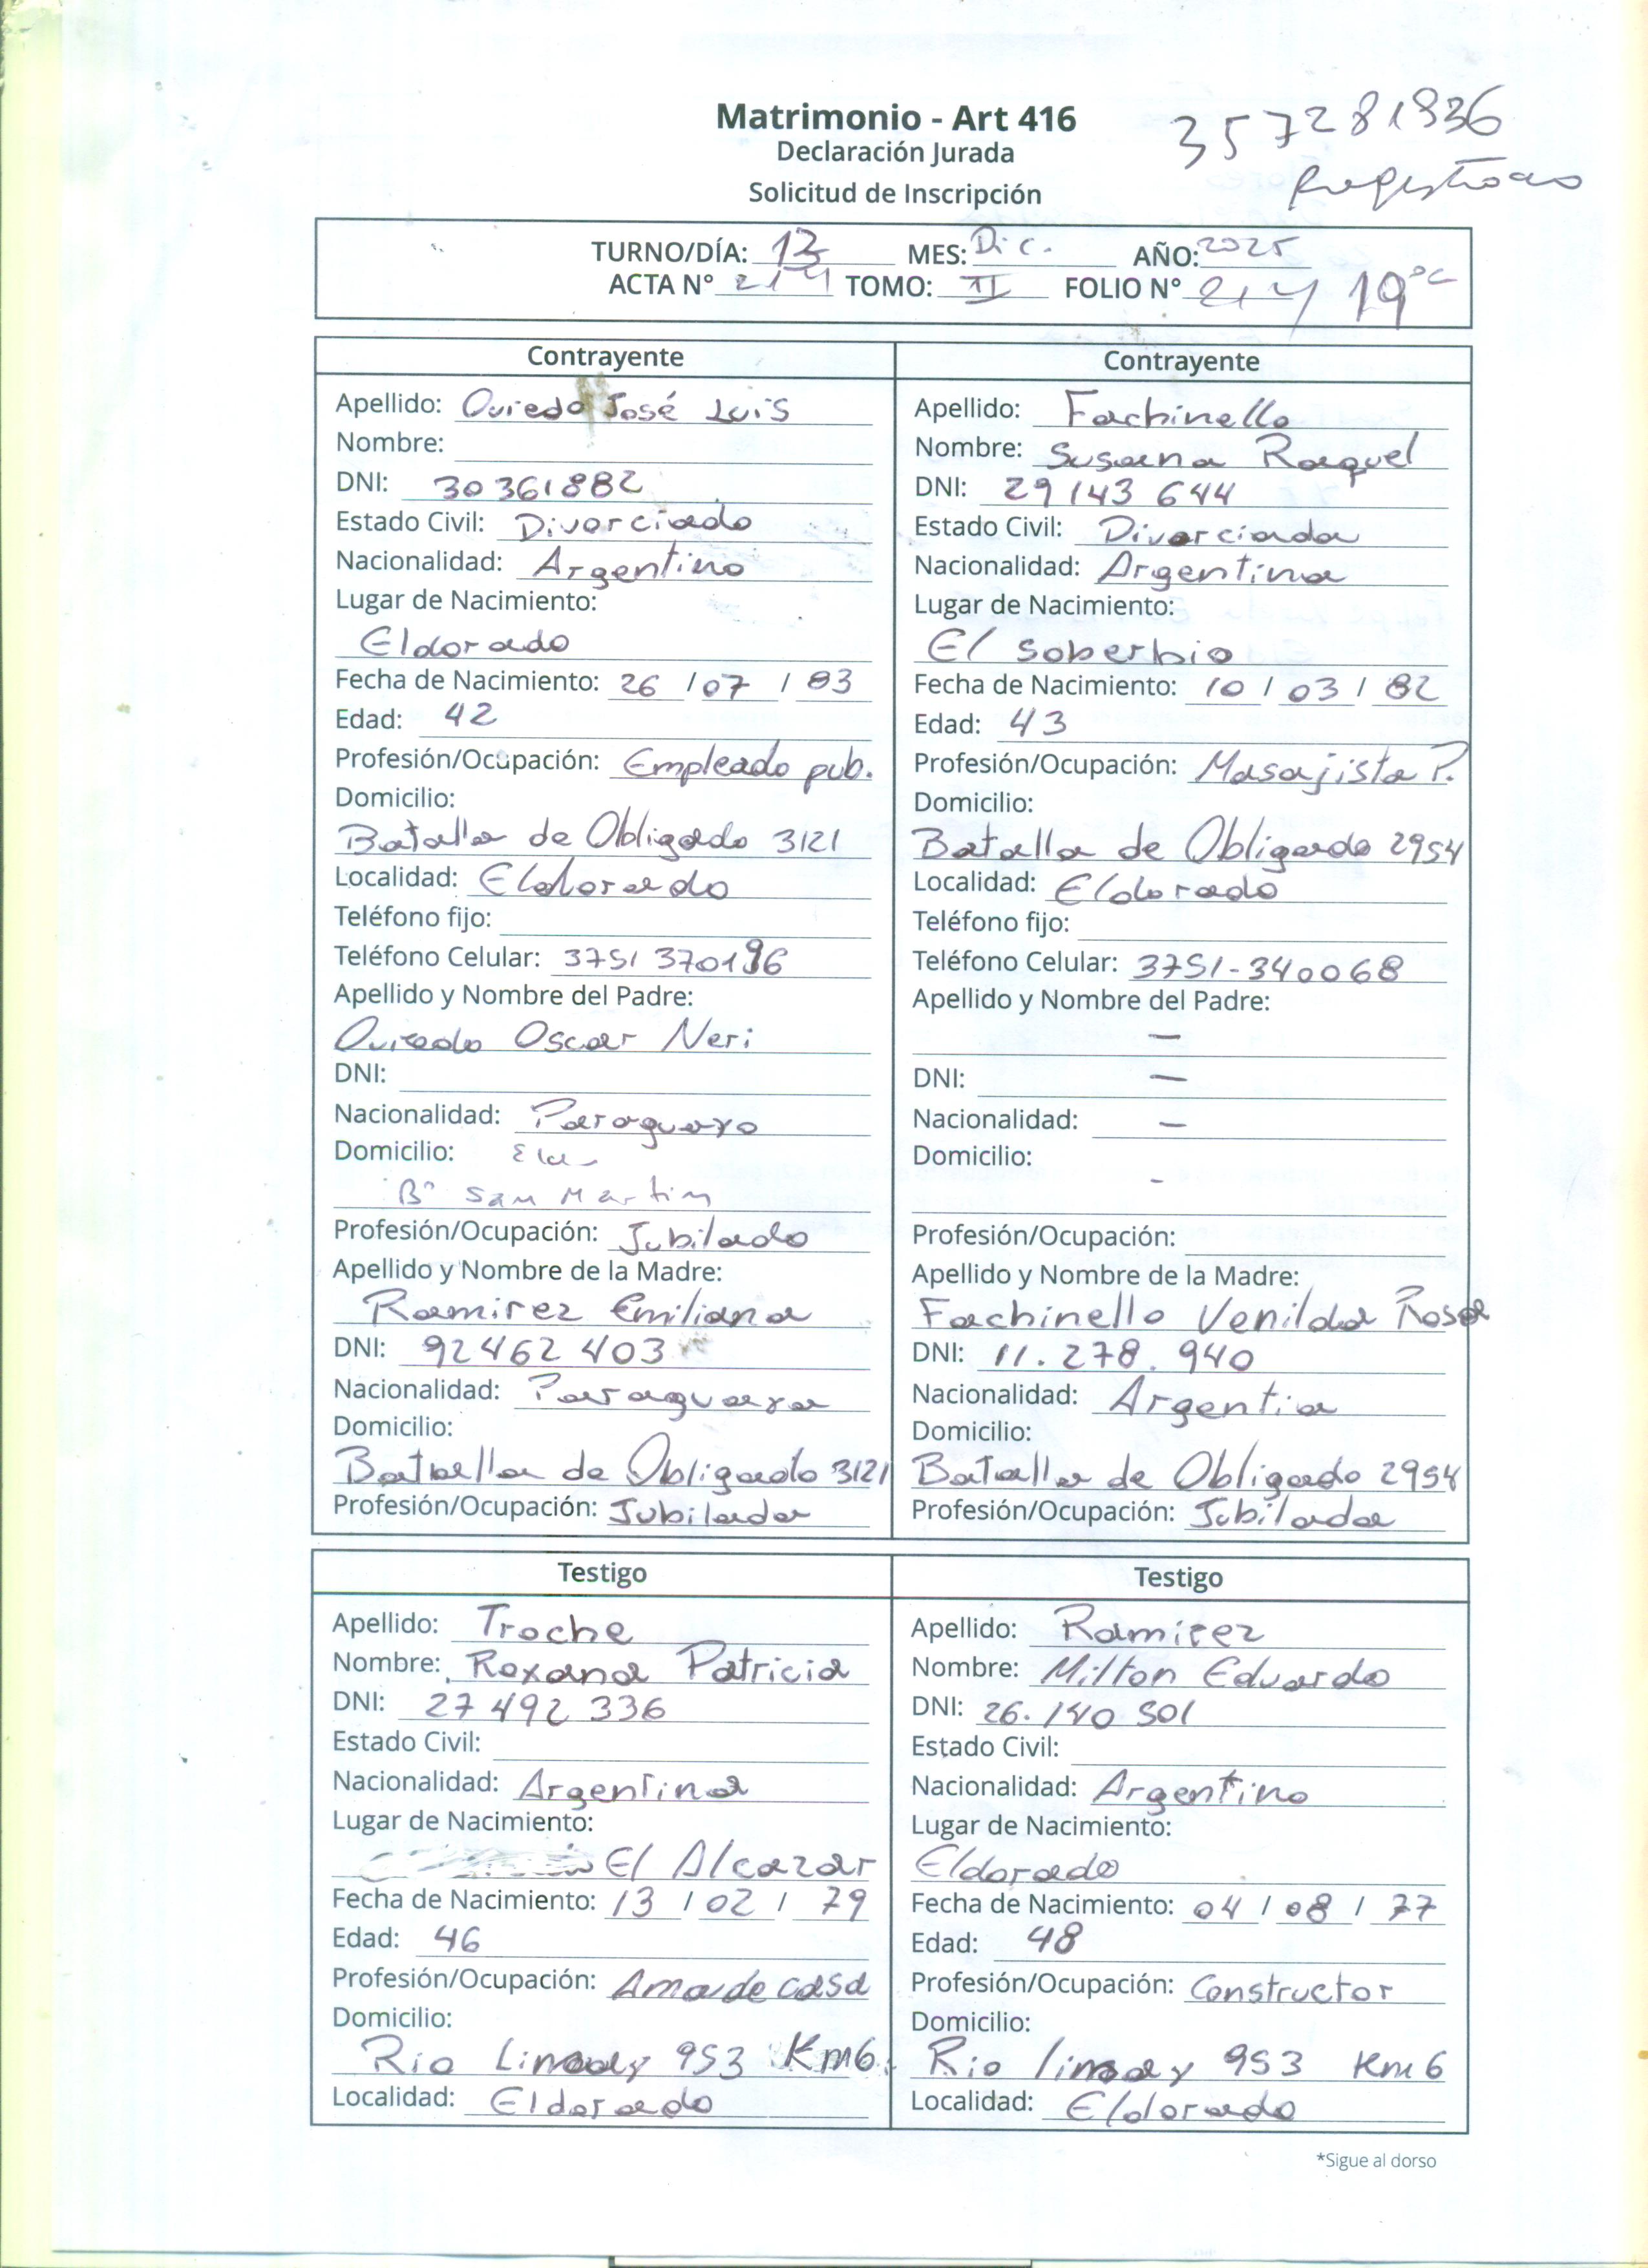 Matrimonio - Art 416
357281936
Declaración Jurada
Registrado
Solicitud de Inscripción
TURNO/DÍA: 13 MES: Dic. AÑO: 2025
ACTA N° 214 TOMO: II FOLIO N° 214 19°°
Contrayente
Apellido: Oviedo José Luis
Nombre:
DNI: 30361882
Estado Civil: Divorciado
Nacionalidad: Argentino
Lugar de Nacimiento:
Eldorado
Fecha de Nacimiento: 26 / 07 / 83
Edad: 42
Profesión/Ocupación: Empleado pub.
Domicilio:
Batalla de Obligado 3121
Localidad: Eldorado
Teléfono fijo:
Teléfono Celular: 3751 370196
Apellido y Nombre del Padre:
Oviedo Oscar Neri
DNI:
Nacionalidad: Paraguayo
Domicilio:
B° San Martin
Profesión/Ocupación: Jubilado
Apellido y Nombre de la Madre:
Ramirez Emiliana
DNI: 92462 403
Nacionalidad: Paraguaya
Domicilio:
Batalla de Obligado 3121
Profesión/Ocupación: Jubilada
Contrayente
Apellido: Fachinello
Nombre: Susana Raquel
DNI: 29143 644
Estado Civil: Divorciada
Nacionalidad: Argentina
Lugar de Nacimiento:
El Soberbio
Fecha de Nacimiento: 10 / 03 / 82
Edad: 43
Profesión/Ocupación: Masajista P.
Domicilio:
Batalla de Obligado 2954
Localidad: Eldorado
Teléfono fijo:
Teléfono Celular: 3751-340068
Apellido y Nombre del Padre:
—
DNI: —
Nacionalidad: —
Domicilio:
-
Profesión/Ocupación:
Apellido y Nombre de la Madre:
Fachinello Venilda Rosa
DNI: 11.278.940
Nacionalidad: Argentia
Domicilio:
Batalla de Obligado 2954
Profesión/Ocupación: Jubilada
Testigo
Apellido: Troche
Nombre: Roxana Patricia
DNI: 27 492 336
Estado Civil:
Nacionalidad: Argentina
Lugar de Nacimiento:
El Alcazar
Fecha de Nacimiento: 13 / 02 / 79
Edad: 46
Profesión/Ocupación: Ama de casa
Domicilio:
Rio 953 Km6.
Localidad: Eldorado
Testigo
Apellido: Ramirez
Nombre: Milton Eduardo
DNI: 26.140 501
Estado Civil:
Nacionalidad: Argentino
Lugar de Nacimiento:
Eldorado
Fecha de Nacimiento: 04 / 08 / 77
Edad: 48
Profesión/Ocupación: Constructor
Domicilio:
Rio 953 Km 6
Localidad: Eldorado
*Sigue al dorso